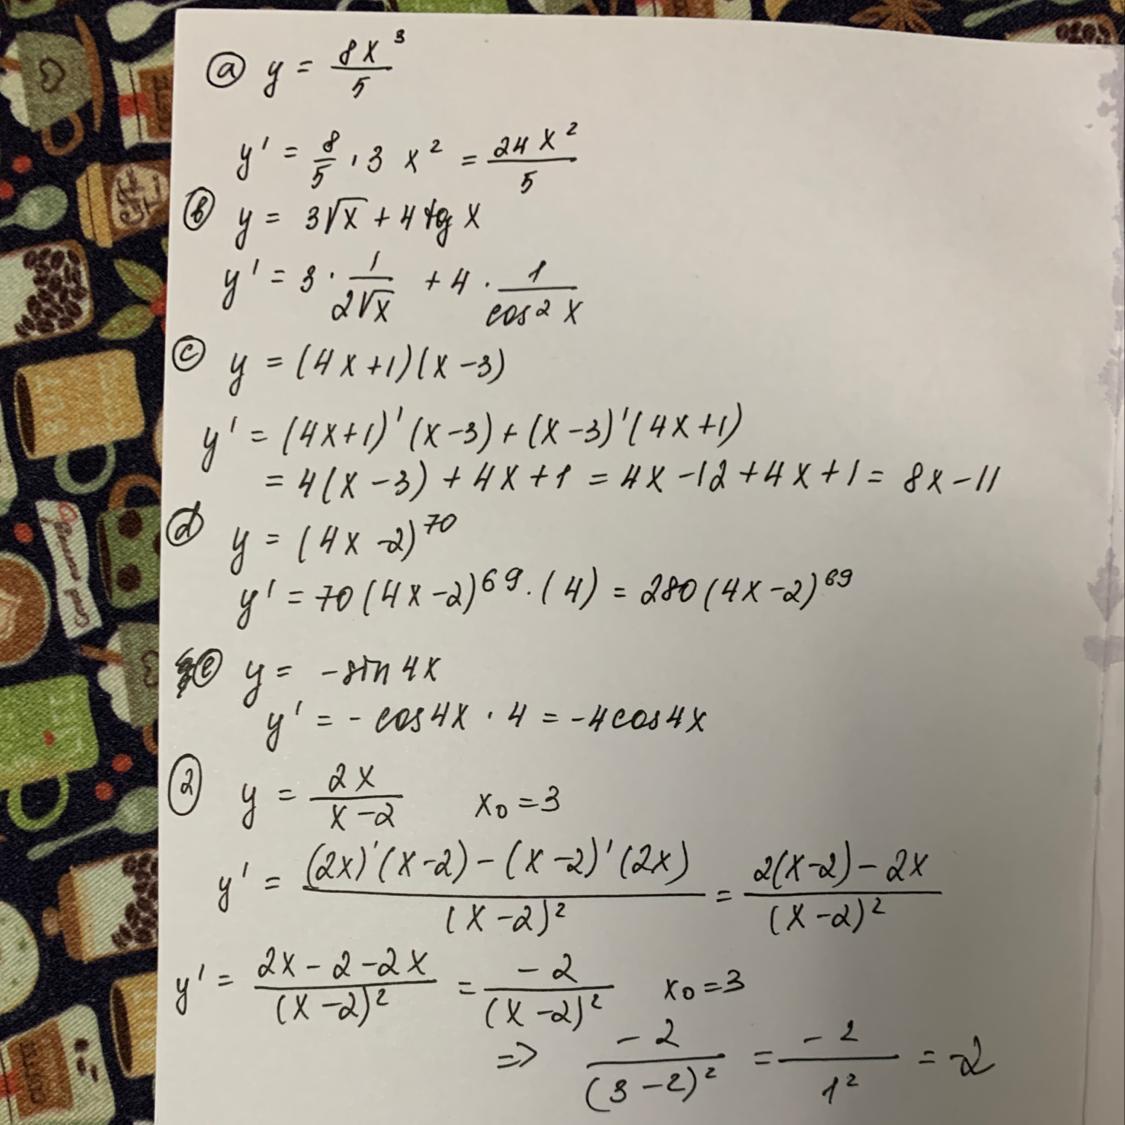 a) y = 8x³/5
y' = 8/5 · 3x² = 24x²/5
b) y = 3√x + 4tg x
y' = 3 · 1/(2√x) + 4 · 1/cos² x
c) y = (4x+1)(x-3)
y' = (4x+1)'(x-3) + (x-3)'(4x+1)
= 4(x-3) + 4x+1 = 4x-12+4x+1 = 8x-11
d) y = (4x-2)⁷⁰
y' = 70(4x-2)⁶⁹ · (4) = 280(4x-2)⁶⁹
e) y = -sin 4x
y' = -cos4x · 4 = -4cos4x
2) y = 2x/(x-2) x₀ = 3
y' = ((2x)'(x-2) - (x-2)'(2x))/(x-2)² = (2(x-2) - 2x)/(x-2)²
y' = (2x-2-2x)/(x-2)² = -2/(x-2)² x₀ = 3
=> -2/(3-2)² = -2/1² = -2